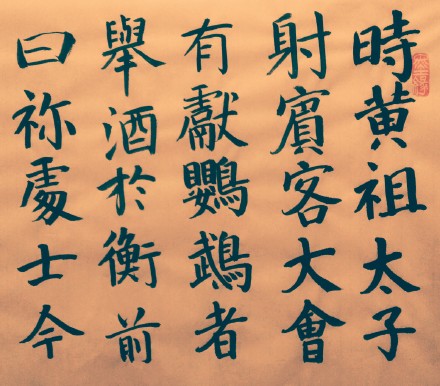 時黄祖太子
射賓客大會
有獻鸚鵡者
舉酒於衡前
曰祢處士今